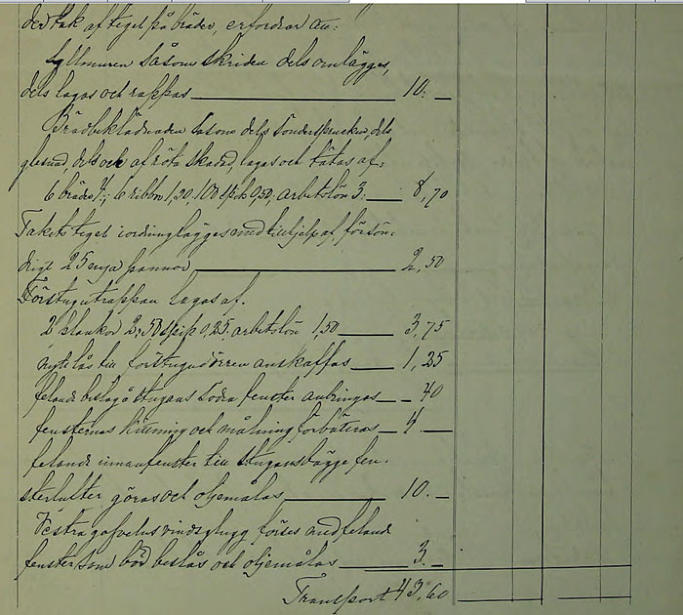 der tak af tegel på bräder, erfordrar an:
Syllmuren såsom skriden dels omlägges,
dels lagas och rappas 10. —
Brädbeklädnaden såsom dels sönderspruckn, dels
glesnad, dels och af röta skadad, lagas och tätas af:
6 bräder 3,; 6 ribbor 1,20. 100 spik 0,50. arbetslön 3. 8,70
Takets tegel iordninglägges med tillhjelp af, försön:
digt 25 nya pannor 2,50
Förstugutrappan lagas af.
2 plankor 2,; 50 spik 0,25. arbetslön 1,50 3,75
nytt lås till förstugudörren anskaffas 1,25
feland beslag å stugans södra fenster anbringas — 40
fensternas kittning och målning förbättras 4 —
felande innanfenster till stugans bägge fen-
sterlufter göras och oljemålas 10. —
Vestra gafvelns vindsglugg förses med feland
fenster, som bör beslås och oljemålas 3. —
Transport 43,60